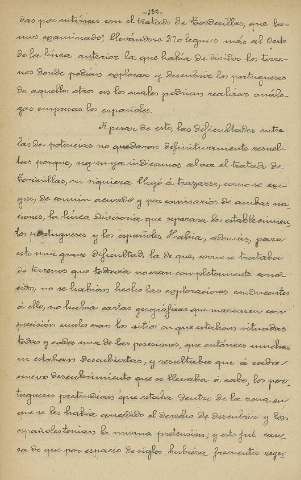 -132-
das por entónces con el tratado de Tordecillas, que he-
mos examinado, llevándose 270 leguas más al Oeste
de la línea anterior la que había de dividir los terre-
nos donde podían explorar y descubrir los portugueses
de aquellos otros en los cuales podrían realizar análo-
gas empresas los españoles.
A pesar de esto, las dificultades entre
las dos potencias no quedaron definitivamente resuel-
tas porque, según ya indicamos al hacer el tratado de
Tordecillas, ni siquiera llegó á trazarse, como se exi-
gía, de común acuerdo y por comisarios de ambas na-
ciones, la línea divisoria que separase los establecimien-
tos portugueses y los españoles. Había, además, para
esto una grave dificultad, la de que, como se trataba
de terrenos que todavía no eran completamente cono-
cidos, no se habían hecho las exploraciones conducentes
á ello, no había cartas geográficas que marcasen con
precisión cuales eran los sitios en que estaban situadas
todas y cada una de las posesiones, que entónces muchas
ni estaban descubiertas, y resultaba que á cada
nuevo descubrimiento que se llevaba á cabo, los por-
tugueses pretendían que estaba dentro de la zona en
que se les había concedido el derecho de descubrir y los
españoles tenían la misma pretensión; y esto fué cau-
sa de que por espacio de siglos hubiera frecuentes nego-